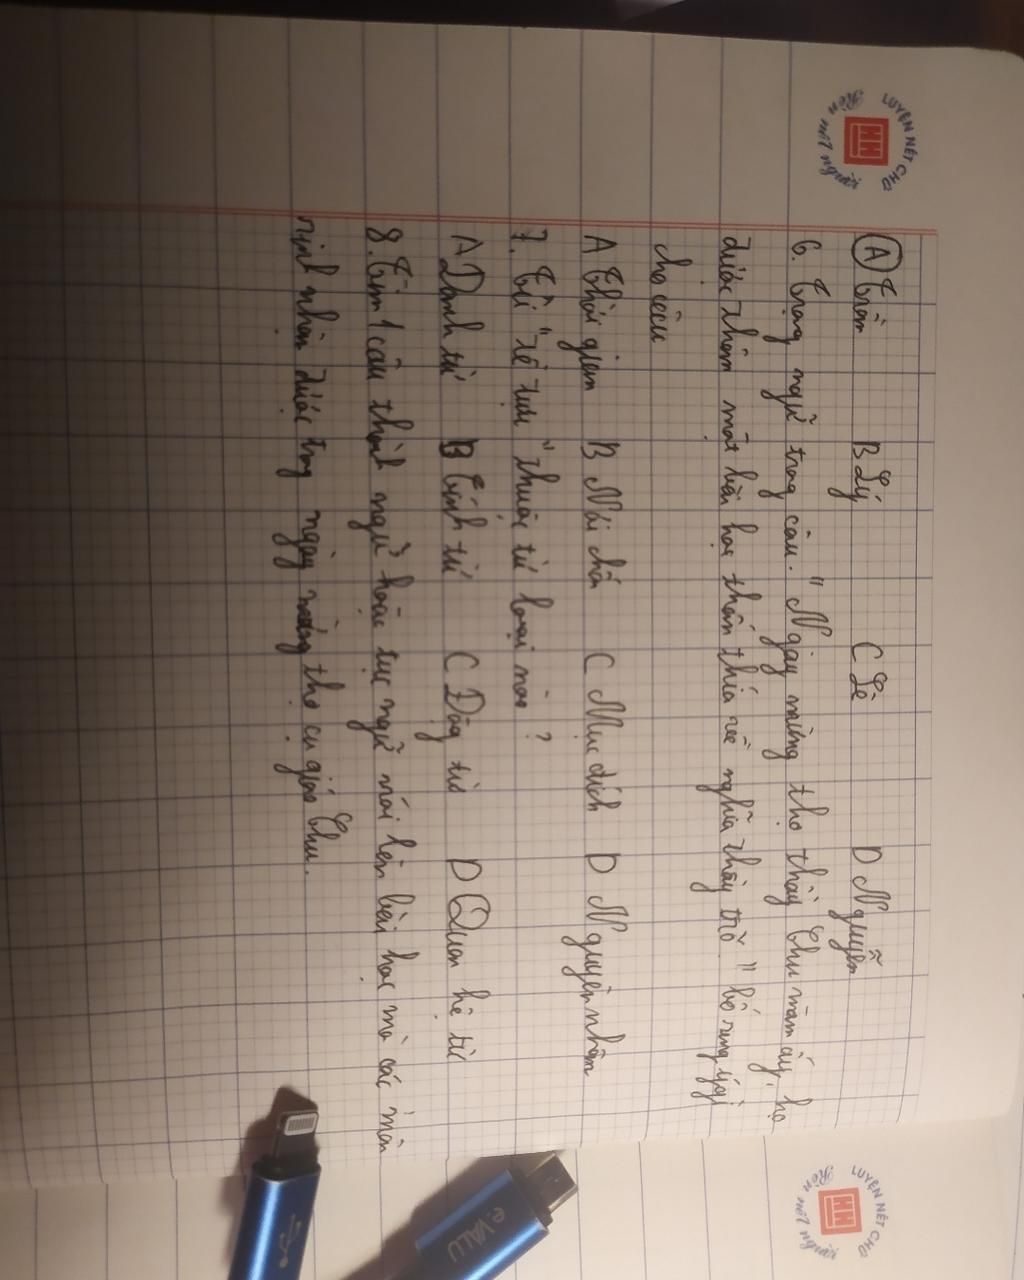 LUYỆN NÉT CHỮ
Rèn nết người
HH
A Trần B Lý C Lê D Nguyễn
6. Trạng ngữ trong câu. " Ngày mừng thọ thầy Chu năm ấy, họ
được thêm một bài học thấm thía về nghĩa thầy trò " bổ sung ý gì
cho câu
A Thời gian B Nơi chốn C Mục đích D Nguyên nhân
7. Từ " tề tựu " thuộc từ loại nào ?
A Danh từ B Tính từ C Động từ D Quan hệ từ
8. Tìm 1 câu thành ngữ hoặc tục ngữ nói lên bài học mà các môn
sinh nhận được trong ngày mừng thọ cụ giáo Chu.
LUYỆN NÉT CHỮ
Rèn nết người
HH
e.VALU